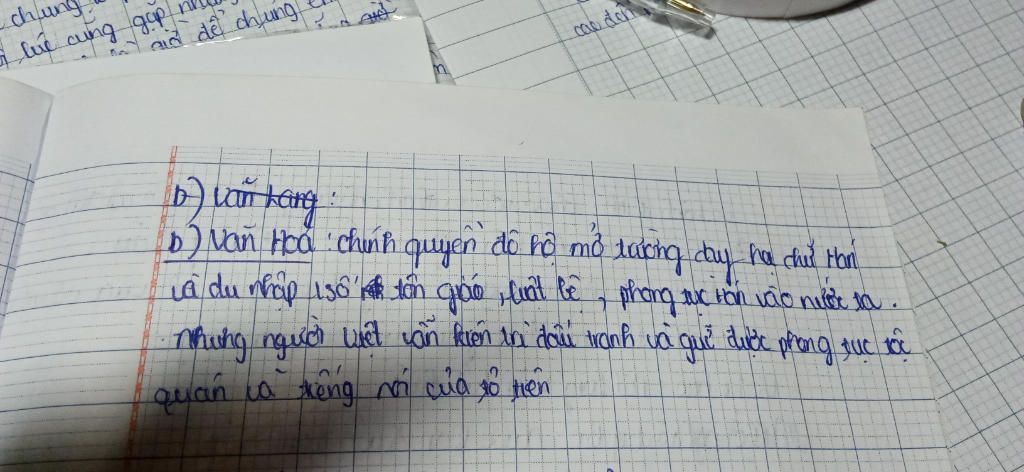 chung
lúc cũng gặp nha
giờ để chung
cao đẳn
b) Văn Lang :
b) Văn Hoá : chính quyền đô hộ mở trường dạy học chữ Hán
và du nhập 1 số tôn giáo, luật lệ, phong tục Hán vào nước ta.
nhưng người việt vẫn kiên trì đấu tranh và giữ được phong tục tộc
quán và tiếng nói của tổ tiên